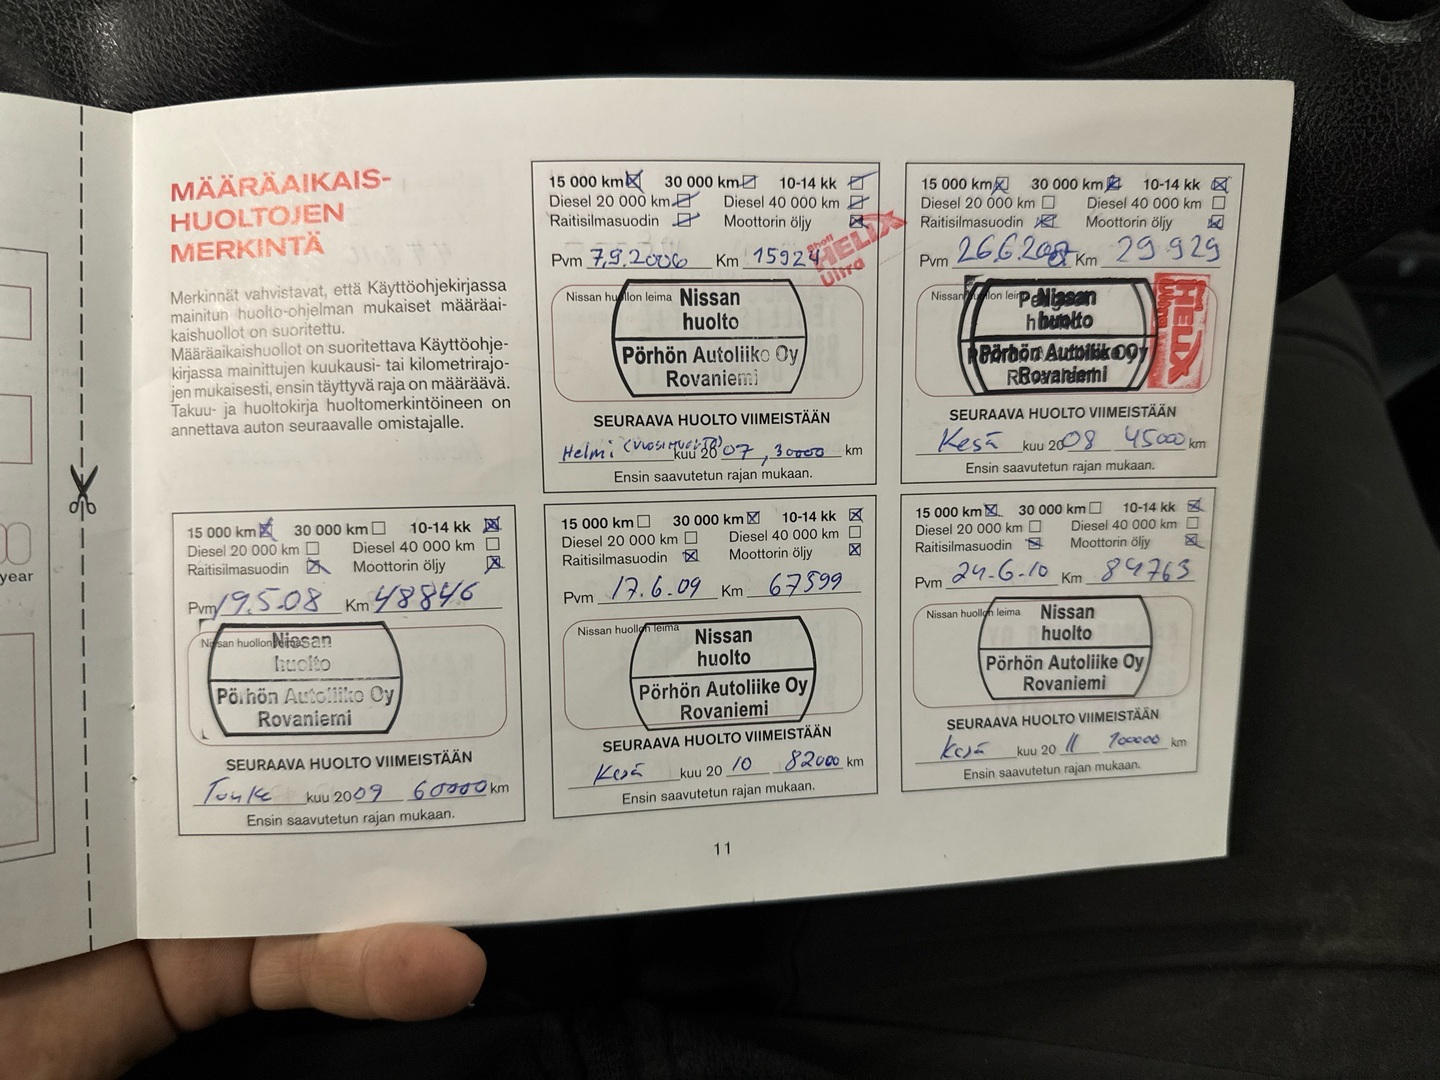 MÄÄRÄAIKAIS-
HUOLTOJEN
MERKINTÄ
Merkinnät vahvistavat, että Käyttöohjekirjassa
mainitun huolto-ohjelman mukaiset määräai-
kaishuollot on suoritettu.
Määräaikaishuollot on suoritettava Käyttöohje-
kirjassa mainittujen kuukausi- tai kilometrirajo-
jen mukaisesti, ensin täyttyvä raja on määräävä.
Takuu- ja huoltokirja huoltomerkintöineen on
annettava auton seuraavalle omistajalle.
15 000 km 30 000 km 10-14 kk
Diesel 20 000 km Diesel 40 000 km
Raitisilmasuodin Moottorin öljy
Shell
HELIX
Ultra
Pvm 7.9.2006 Km 15924
Nissan huollon leima
Nissan
huolto
Pörhön Autoliike Oy
Rovaniemi
SEURAAVA HUOLTO VIIMEISTÄÄN
Helmi (vuosihuolto) kuu 2007, 30000 km
Ensin saavutetun rajan mukaan.
15 000 km 30 000 km 10-14 kk
Diesel 20 000 km Diesel 40 000 km
Raitisilmasuodin Moottorin öljy
Pvm 26.6.2007 Km 29 929
Nissan huollon leima
Nissan
huolto
Pörhön Autoliike Oy
Rovaniemi
HELIX
SEURAAVA HUOLTO VIIMEISTÄÄN
Kesä kuu 2008 45000 km
Ensin saavutetun rajan mukaan.
15 000 km 30 000 km 10-14 kk
Diesel 20 000 km Diesel 40 000 km
Raitisilmasuodin Moottorin öljy
Pvm 19.5.08 Km 48846
Nissan huollon leima
Nissan
huolto
Pörhön Autoliike Oy
Rovaniemi
SEURAAVA HUOLTO VIIMEISTÄÄN
Touko kuu 2009 60000 km
Ensin saavutetun rajan mukaan.
15 000 km 30 000 km 10-14 kk
Diesel 20 000 km Diesel 40 000 km
Raitisilmasuodin Moottorin öljy
Pvm 17.6.09 Km 67599
Nissan huollon leima
Nissan
huolto
Pörhön Autoliike Oy
Rovaniemi
SEURAAVA HUOLTO VIIMEISTÄÄN
Kesä kuu 20 10 82000 km
Ensin saavutetun rajan mukaan.
15 000 km 30 000 km 10-14 kk
Diesel 20 000 km Diesel 40 000 km
Raitisilmasuodin Moottorin öljy
Pvm 24.6.10 Km 84763
Nissan huollon leima
Nissan
huolto
Pörhön Autoliike Oy
Rovaniemi
SEURAAVA HUOLTO VIIMEISTÄÄN
Kesä kuu 20 11 100000 km
Ensin saavutetun rajan mukaan.
11
year